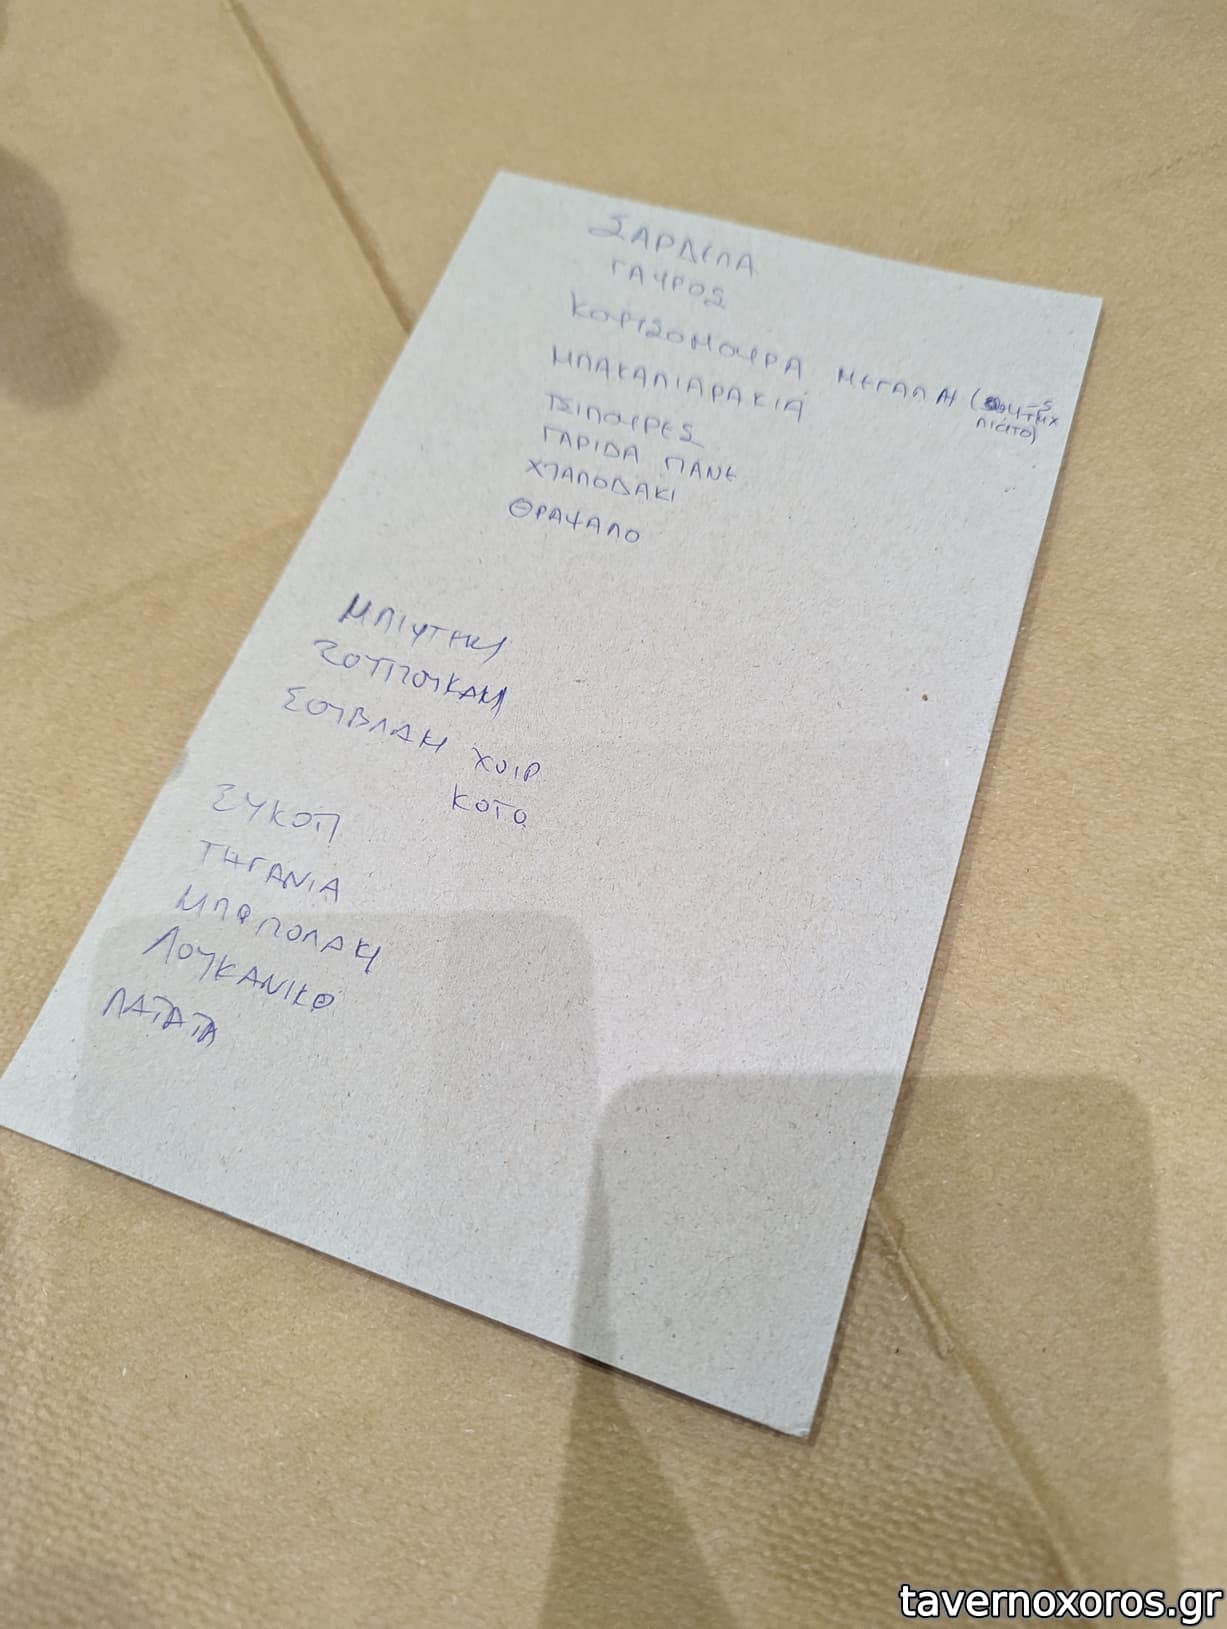 ΣΑΡΔΕΛΑ
ΓΑΥΡΟΣ
ΚΟΥΤΣΟΜΟΥΡΑ ΜΕΓΑΛΗ (
ΠΙΑΤΟ)
ΜΠΑΚΑΛΙΑΡΑΚΙΑ
ΤΣΙΠΟΥΡΕΣ
ΓΑΡΙΔΑ ΠΑΝΕ
ΧΤΑΠΟΔΑΚΙ
ΘΡΑΨΑΛΟ
ΜΠΙΦΤΕΚΙ
ΣΟΥΤΖΟΥΚΑΚΙ
ΣΟΥΒΛΑΚΙ ΧΟΙΡ
ΚΟΤΟ
ΣΥΚΩΤΙ
ΤΗΓΑΝΙΑ
ΛΟΥΚΑΝΙΚΟ
ΠΑΤΑΤΑ
tavernoxoros.gr